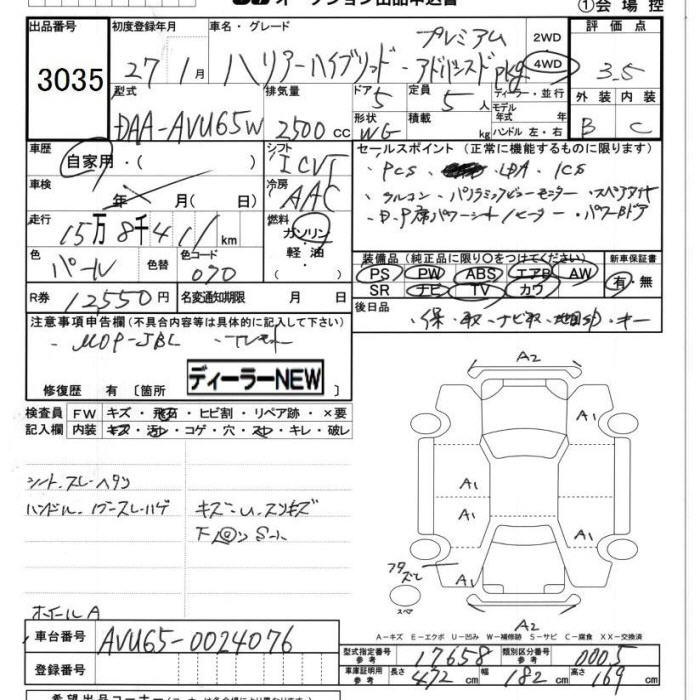 オークション出品申込書
①会場控
出品番号 3035
初度登録年月 27 1月
車名・グレード ハリアーハイブリッド・プレミアム アドバンスドpkg
2WD 4WD
評価点 3.5
型式 DAA-AVU65W
排気量 2500cc
ドア 5
形状 WG
定員 5人
積載 kg
ディーラー・並行
モデル年式 年式
ハンドル 左・右
外装 B
内装 C
車歴 自家用・( )
シフト ICVT
セールスポイント (正常に機能するものに限ります)
・PCS ・LDA・ICS
・クルコン・パノラミックビューモニター・スペアタイヤ
・D.P席パワーシート/ヒーター・パワーBドア
車検 年 月( 日)
冷房 AAC
走行 15万8千411km
燃料 ガソリン 軽油 ( )
色 パール
色替
色コード 070
装備品 (純正品に限り○をつけてください)
PS PW ABS エアB AW
SR ナビ TV カワ
新車保証書 有・無
R券 12550円
名変通知期限 月 日
後日品 ・保・取・ナビ取・地図SD・キー
注意事項申告欄 (不具合内容等は具体的に記入して下さい)
・MOP-JBL
修復歴 有 [箇所 ディーラーNEW
検査員記入欄
FW キズ・飛石・ヒビ割・リペア跡・×要
内装 キズ・汚レ・コゲ・穴・スレ・キレ・破レ
シート.スレ・ヘタリ
ハンドル.ノブースレ・ハゲ
キズ・U.スリキズ
ホイールA
A2
A1
A1
A1
A1
A1
A1
A2
スペア
A-キズ E-エクボ U-凹み W-補修跡 S-サビ C-腐食 XX-交換済
車台番号 AVU65-0024076
登録番号
型式指定番号 参考 17658
類別区分番号 参考 0005
車庫証明用 参考 長さ 472cm 幅 182cm 高さ 169cm
希望出品コーナー